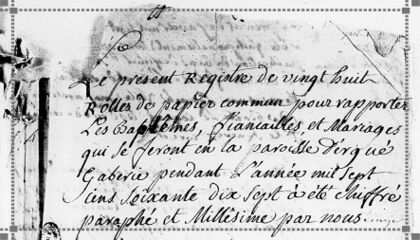 Le present Registre de vingt huit
Rolles de papier commun pour rapporter
Les baptêmes, fiancailles, et Mariages
qui se feront en la paroisse d'ergué
Gaberic pendant L'année mil sept
cens soixante dix sept à été chiffré
paraphé et Millésime par nous